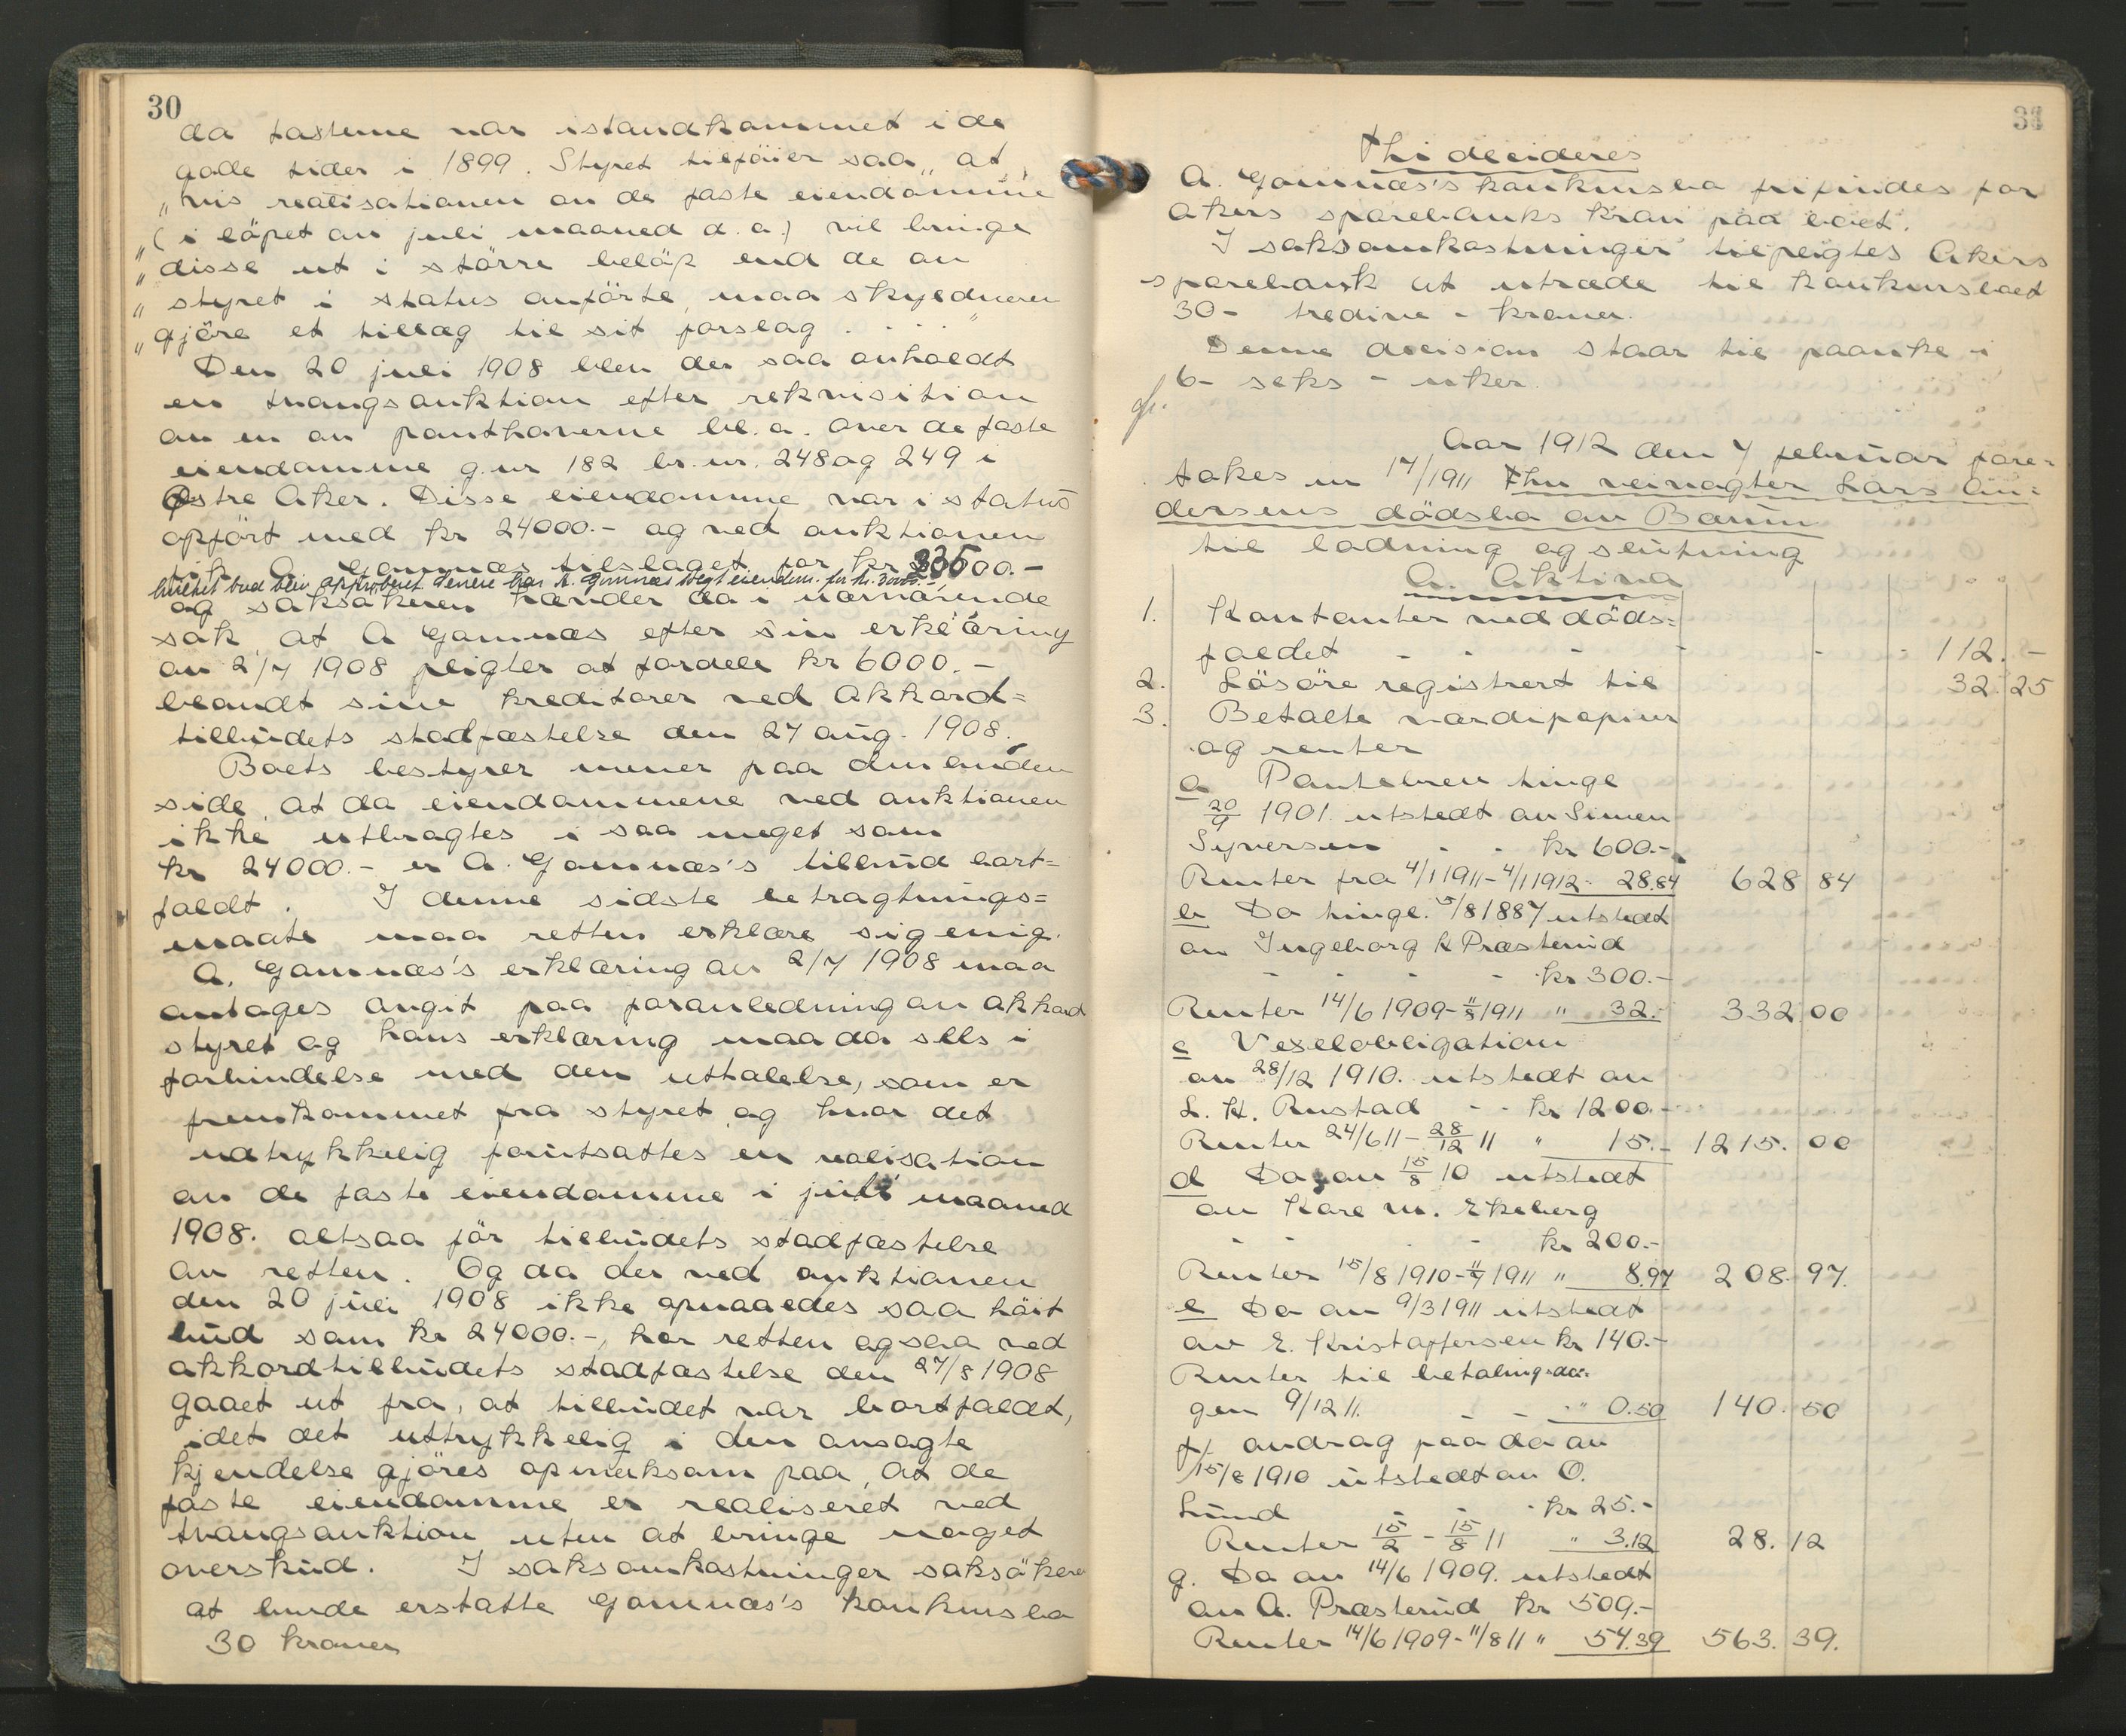 30
da tasterne var istandkommet i de
gode tider i 1899. Styret tilföier saa, „at,
„hvis realisationen av de faste eiendomme
„(i löpet av juli maaned d.a.) vil bringe
„disse ut i större belöp end de av
„styret i status anförte, maa skyldneren
„gjöre et tillæg til sit forslag . . . ."
Den 20 juli 1908 blev der saa avholdt
en tvangsauktion efter rekvisition
av en av panthaverne bl.a. over de faste
eiendomme g.nr 182 br.nr. 248 og 249 i
Østre Aker. Disse eiendomme var i status
opfört med kr 24000.- og ved auktionen
fik A. Gomnæs tilslaget for kr 00.-
hvilket bud blev approberet. Senere har A. Gomnæs solgt eiendom. for kr.
og saksökeren hævder da i nærværende
sak, at A Gomnæs efter sin erklæring
av 2/7 1908 pligter at fordele kr 6000.-
blandt sine kreditorer ved Akkord=
tilbudets stadfæstelse den 27 aug. 1908.
Boets bestyrer mener paa den anden
side, at da eiendommene ved auktionen
ikke utbragtes i saa meget som
kr 24000.- er A. Gomnæs's tilbud bort=
faldt. I denne sidste betragtnings=
maate maa retten erklære sig enig.
A. Gomnæs's erklæring av 2/7 1908 maa
antages avgit paa foranledning av akkord
styret og hans erklæring maa da sees i
forbindelse med den uttalelse, som er
fremkommet fra styret og hvor det
udtrykkelig forutsattes en realisation
av de faste eiendomme i juli maaned
1908. altsaa för tilbudets stadfæstelse
av retten. Og da der ved auktionen
den 20 juli 1908 ikke opnaaedes saa höit
bud som kr 24000.-, har retten ogsaa ved
akkordtilbudets stadfæstelse den 27/8 1908
gaaet ut fra, at tilbudet var bortfaldt,
idet det uttrykkelig i den avsagte
kjendelse gjöres opmerksom paa, at de
faste eiendomme er realiseret ved
tvangsauktion uten at bringe noget
overskud. I saksomkostninger saksöker
at burde erstatte Gomnæs's konkursbo
30 kroner
31
Thi decideres
A. Gomnæs's konkursbo frifindes for
Akers sparebanks krav paa boet.
I saksomkostninger tilpligtes Akers
sparebank at utrede til konkursboet
30 - tredive - kroner.
Denne decision staar til paaanke i
6 - seks - uker.
Aar 1912 den 7 februar fore=
tokes nr 17/1911 Thv veivogter Lars An=
dersens dödsbo av Bærum
til lodning og slutning
A. Aktiva
1. Kontanter ved döds=
faldet - - - - - - 112. -
2. Lösöre registrert til 32. 25
3. Betalte værdipapirer
og renter
a Pantebrev tingl
20/9 1901. utstedt av Simen
Syversen - - kr 600.-
Renter fra 4/1 1911-4/1 1912- 28.84 628 84
b Do tingl. 5/8 1887 utstedt
av Ingeborg K Præsterud
- - - - kr 300.-
Renter 14/6 1909-11/8 1911 " 32.- 332.00
c Vexelobligation
av 28/12 1910. utstedt av
L. H. Rustad - - kr 1200.-
Renter 24/6 11 - 28/12 11 " 15.- 1215. 00
d Do av 15/8 10 utstedt
av Kare M. Ekeberg
- - - - kr 200.-
Renter 15/8 1910-11/7 1911 " 8.97 208. 97.
e Do av 9/3 1911 utstedt
av E. Kristoffersen kr 140.-
Renter til betalingsda=
gen 9/12 11. - - " 0.50 140. 50
f. avdrag paa do av
15/8 1910 utstedt av O.
Lund - kr 25.-
Renter 15/2 - 15/8 11 " 3.12 28. 12
g. Do av 14/6 1909. utstedt
av A. Præsterud kr 509.-
Renter 14/6 1909-11/8 11 " 54.39 563. 39.